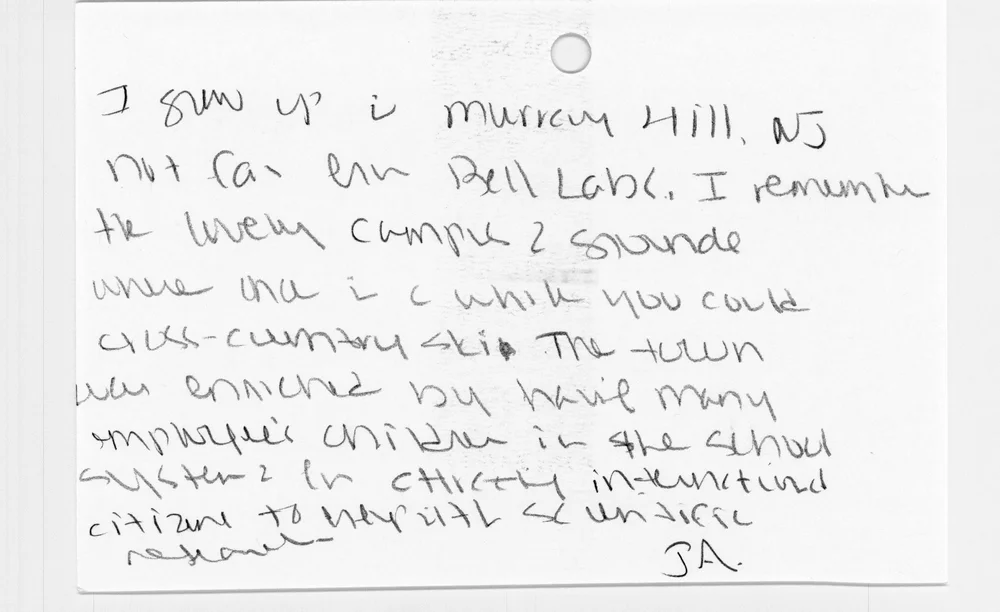 I grew up in Murray Hill, NJ
not far from Bell Labs. I remember
the lovely campus & grounds
where once in a while you could
cross-country ski. The town
was enriched by having many
employee's children in the school
system & for attracting international
citizens to help with scientific
research
JA.